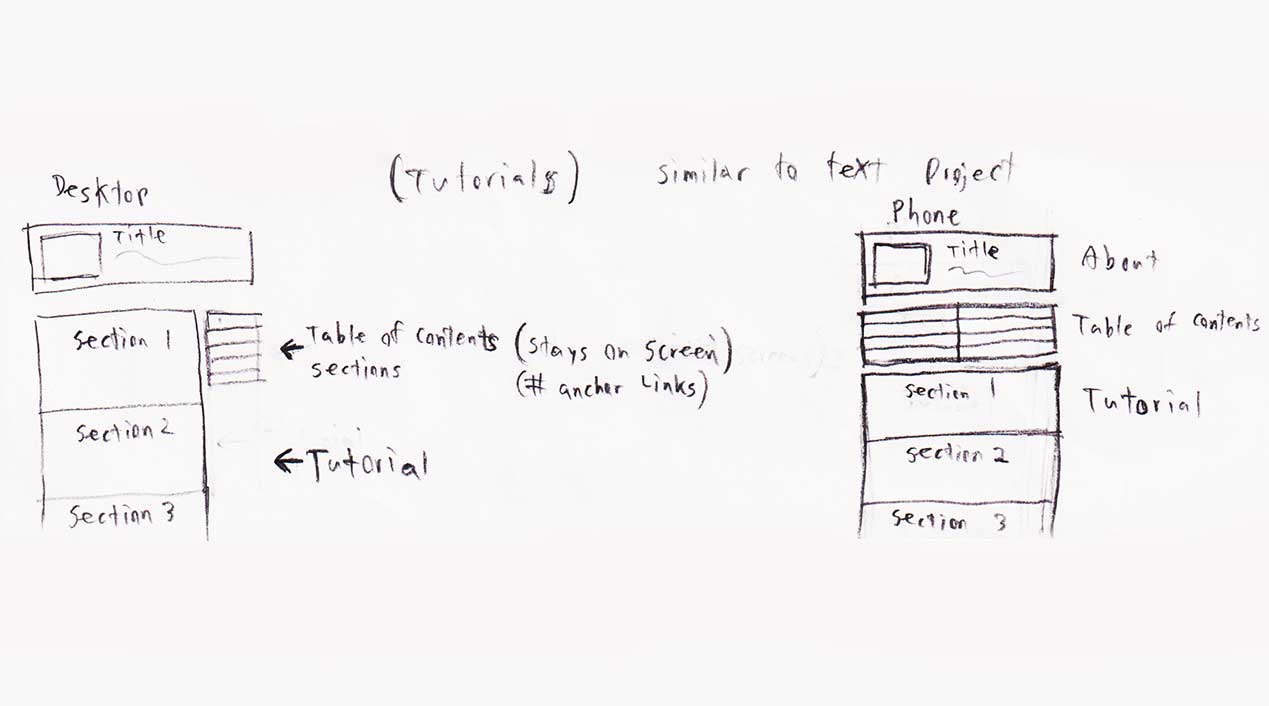 (Tutorials) similar to text Project
Desktop
Title
section 1
Table of contents (stays on screen)
sections (# anchor links)
section 2
Tutorial
section 3
Phone
Title
About
Table of contents
section 1
Tutorial
section 2
section 3